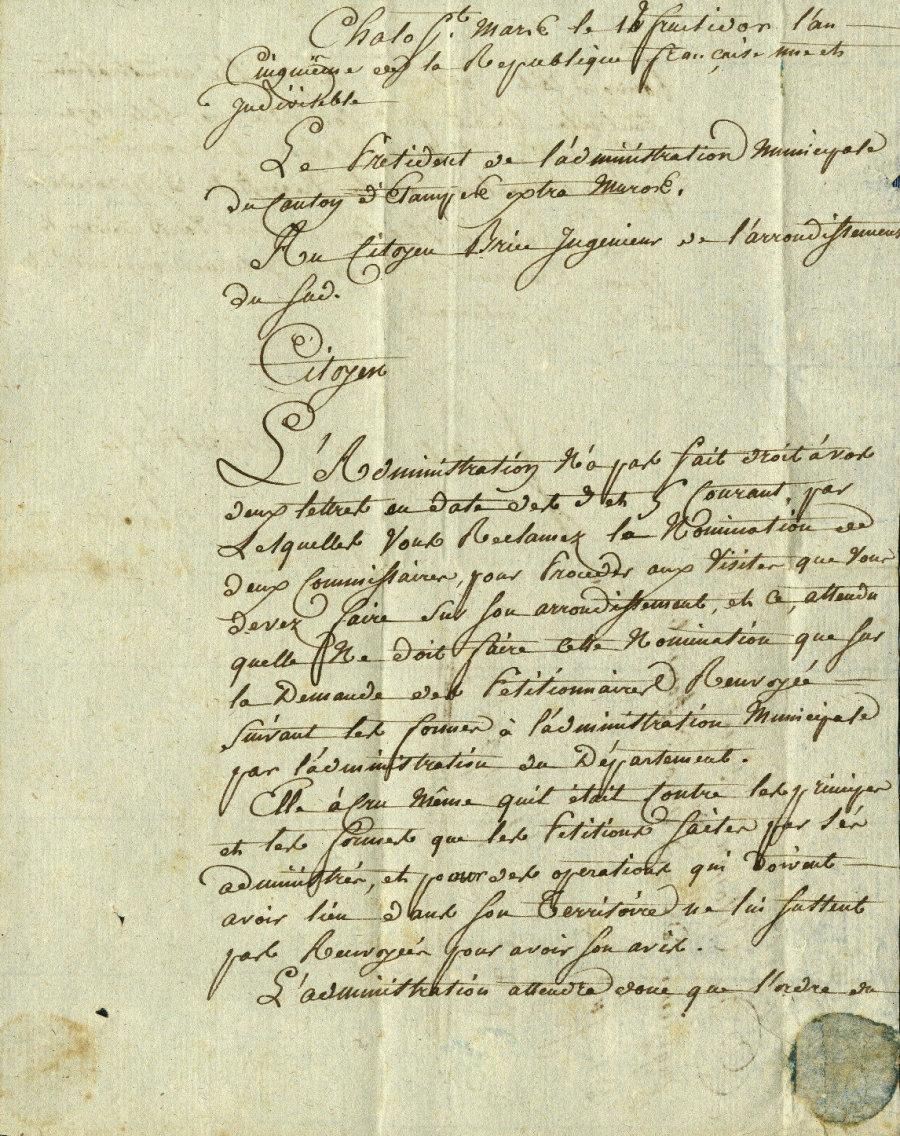 Chalo St. Mars le fructidor l'an
Cinquième de la Republique française une et
Indivisible
Le Président de l'administration Municipale
du Canton d'Etampes extra Muros.
Au Citoyen Brie Ingenieur de l'arrondissement
du Sud.
Citoyen
L'Administration N'a pas fait droit à vos
deux lettres en date des 3 et 5 Courant, par
Lesquelles Vous Reclamez la Nomination de
deux Commissaires, pour Proceder aux Visites que Vous
devez faire sur son arrondissement, et ce, attendu
quelle Ne doit faire cette Nomination que sur
la Demande des Petitionnaires Renvoyée
suivant les formes à l'administration Municipale
par l'administration du Département.
Elle à cru Même quil était Contre les principes
et les formes que les Petitions faites par ses
administrés, et pour des operations qui doivent
avoir lieu dans son Territoire ne lui fussent
pas Renvoyées pour avoir son avis.
L'administration attendra donc que l'ordre du